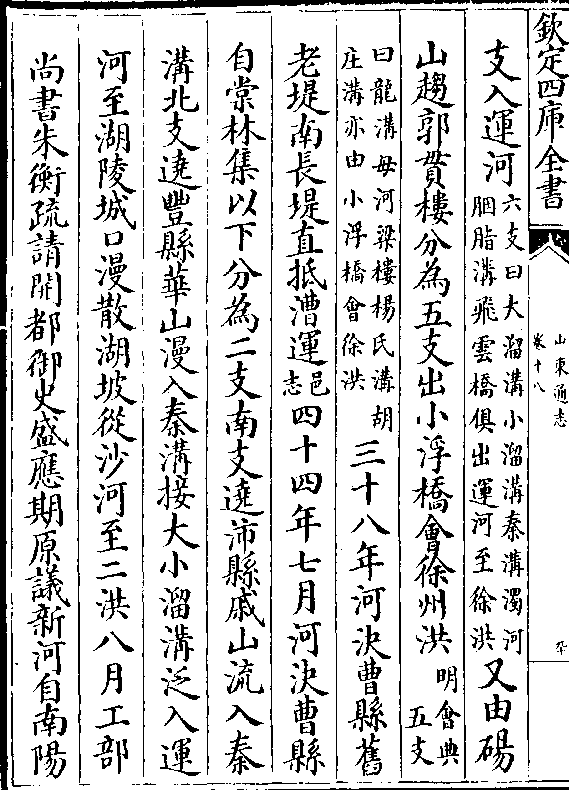 欽定四庫全書
山東通志
卷十八
支入運河六支曰大溜溝小溜溝秦溝濁河
胭脂溝飛雲橋俱出運河至徐洪又由碭
山趨郭貫樓分為五支出小浮橋會徐州洪明會典
五支
曰龍溝母河梁樓楊氏溝胡
庄溝亦由小浮橋會徐洪三十八年河決曹縣舊
老堤南長堤直抵漕運邑
志四十四年七月河決曹縣
自棠林集以下分為二支南支遶沛縣戚山流入秦
溝北支遶豐縣華山漫入秦溝接大小溜溝泛入運
河至湖陵城口漫散湖坡從沙河至二洪八月工部
尚書朱衡疏請開都御史盛應期原議新河自南陽